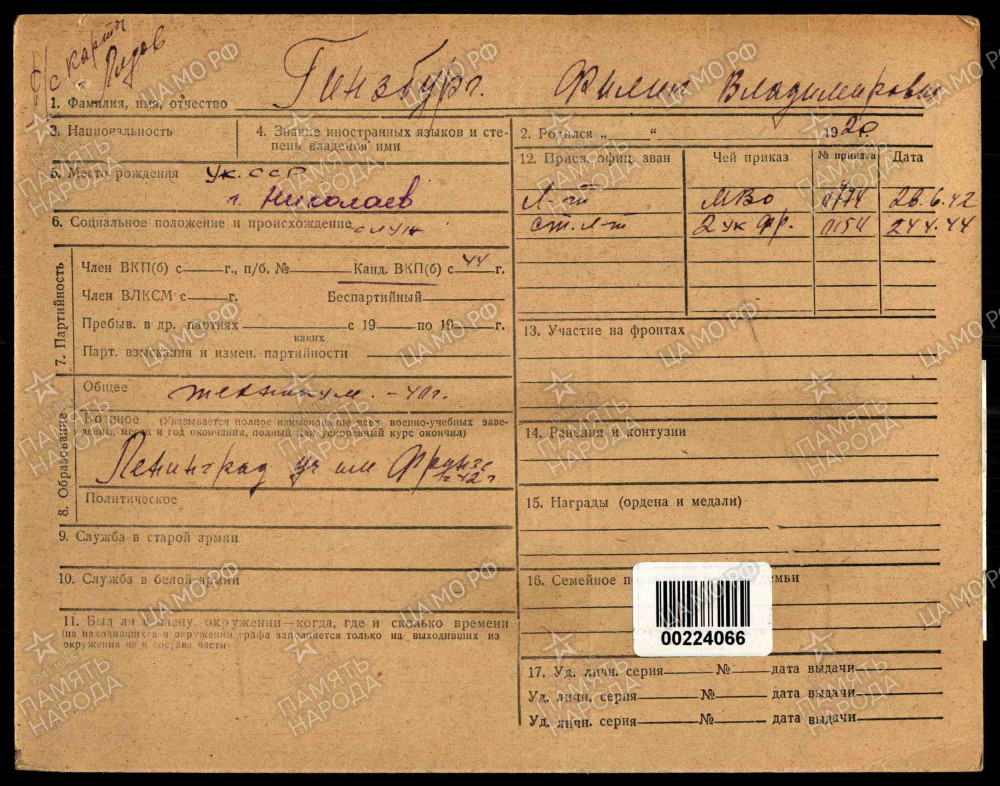 с/с карты
Гинзбург. Филип Владимирович
1. Фамилия, имя, отчество
3. Национальность
4. Знание иностранных языков и сте-
пень владения ими
2. Родился „ “ 1920 г.
5. Место рождения Ук. ССР
г. Николаев
6. Социальное положение и происхождение служ
7. Партийность
Член ВКП(б) с г., п/б. № Канд. ВКП(б) с 44 г.
Член ВЛКСМ с г. Беспартийный
Пребыв. в др. партиях с 19 по 19 г.
каких
Парт. взыскания и измен. партийности
8. Образование
Общее техникум. - 40 г.
Военное (Указывается полное наименование всех военно-учебных заве-
дений, место и год окончания, полный или ускоренный курс окончил)
Ленинград уч им Фрунзе
в 42 г
Политическое
9. Служба в старой армии
10. Служба в белой армии
11. Был ли в плену, окружении—когда, где и сколько времени
(на находившихся в окружении графа заполняется только на выходивших из
окружения не в составе части)
12. Присв. офиц. зван Чей приказ № приказа Дата
Л-т МВО 0774 28.6.42
ст. л-т 2 Ук Фр. 0154 24.4.44
13. Участие на фронтах
14. Ранения и контузии
15. Награды (ордена и медали)
16. Семейное по емьи
00224066
17. Уд. личн. серия № дата выдачи
Уд. личн. серия № дата выдачи
Уд. личн. серия № дата выдачи
ЦАМО РФ
1941-1945
ПАМЯТЬ
НАРОДА